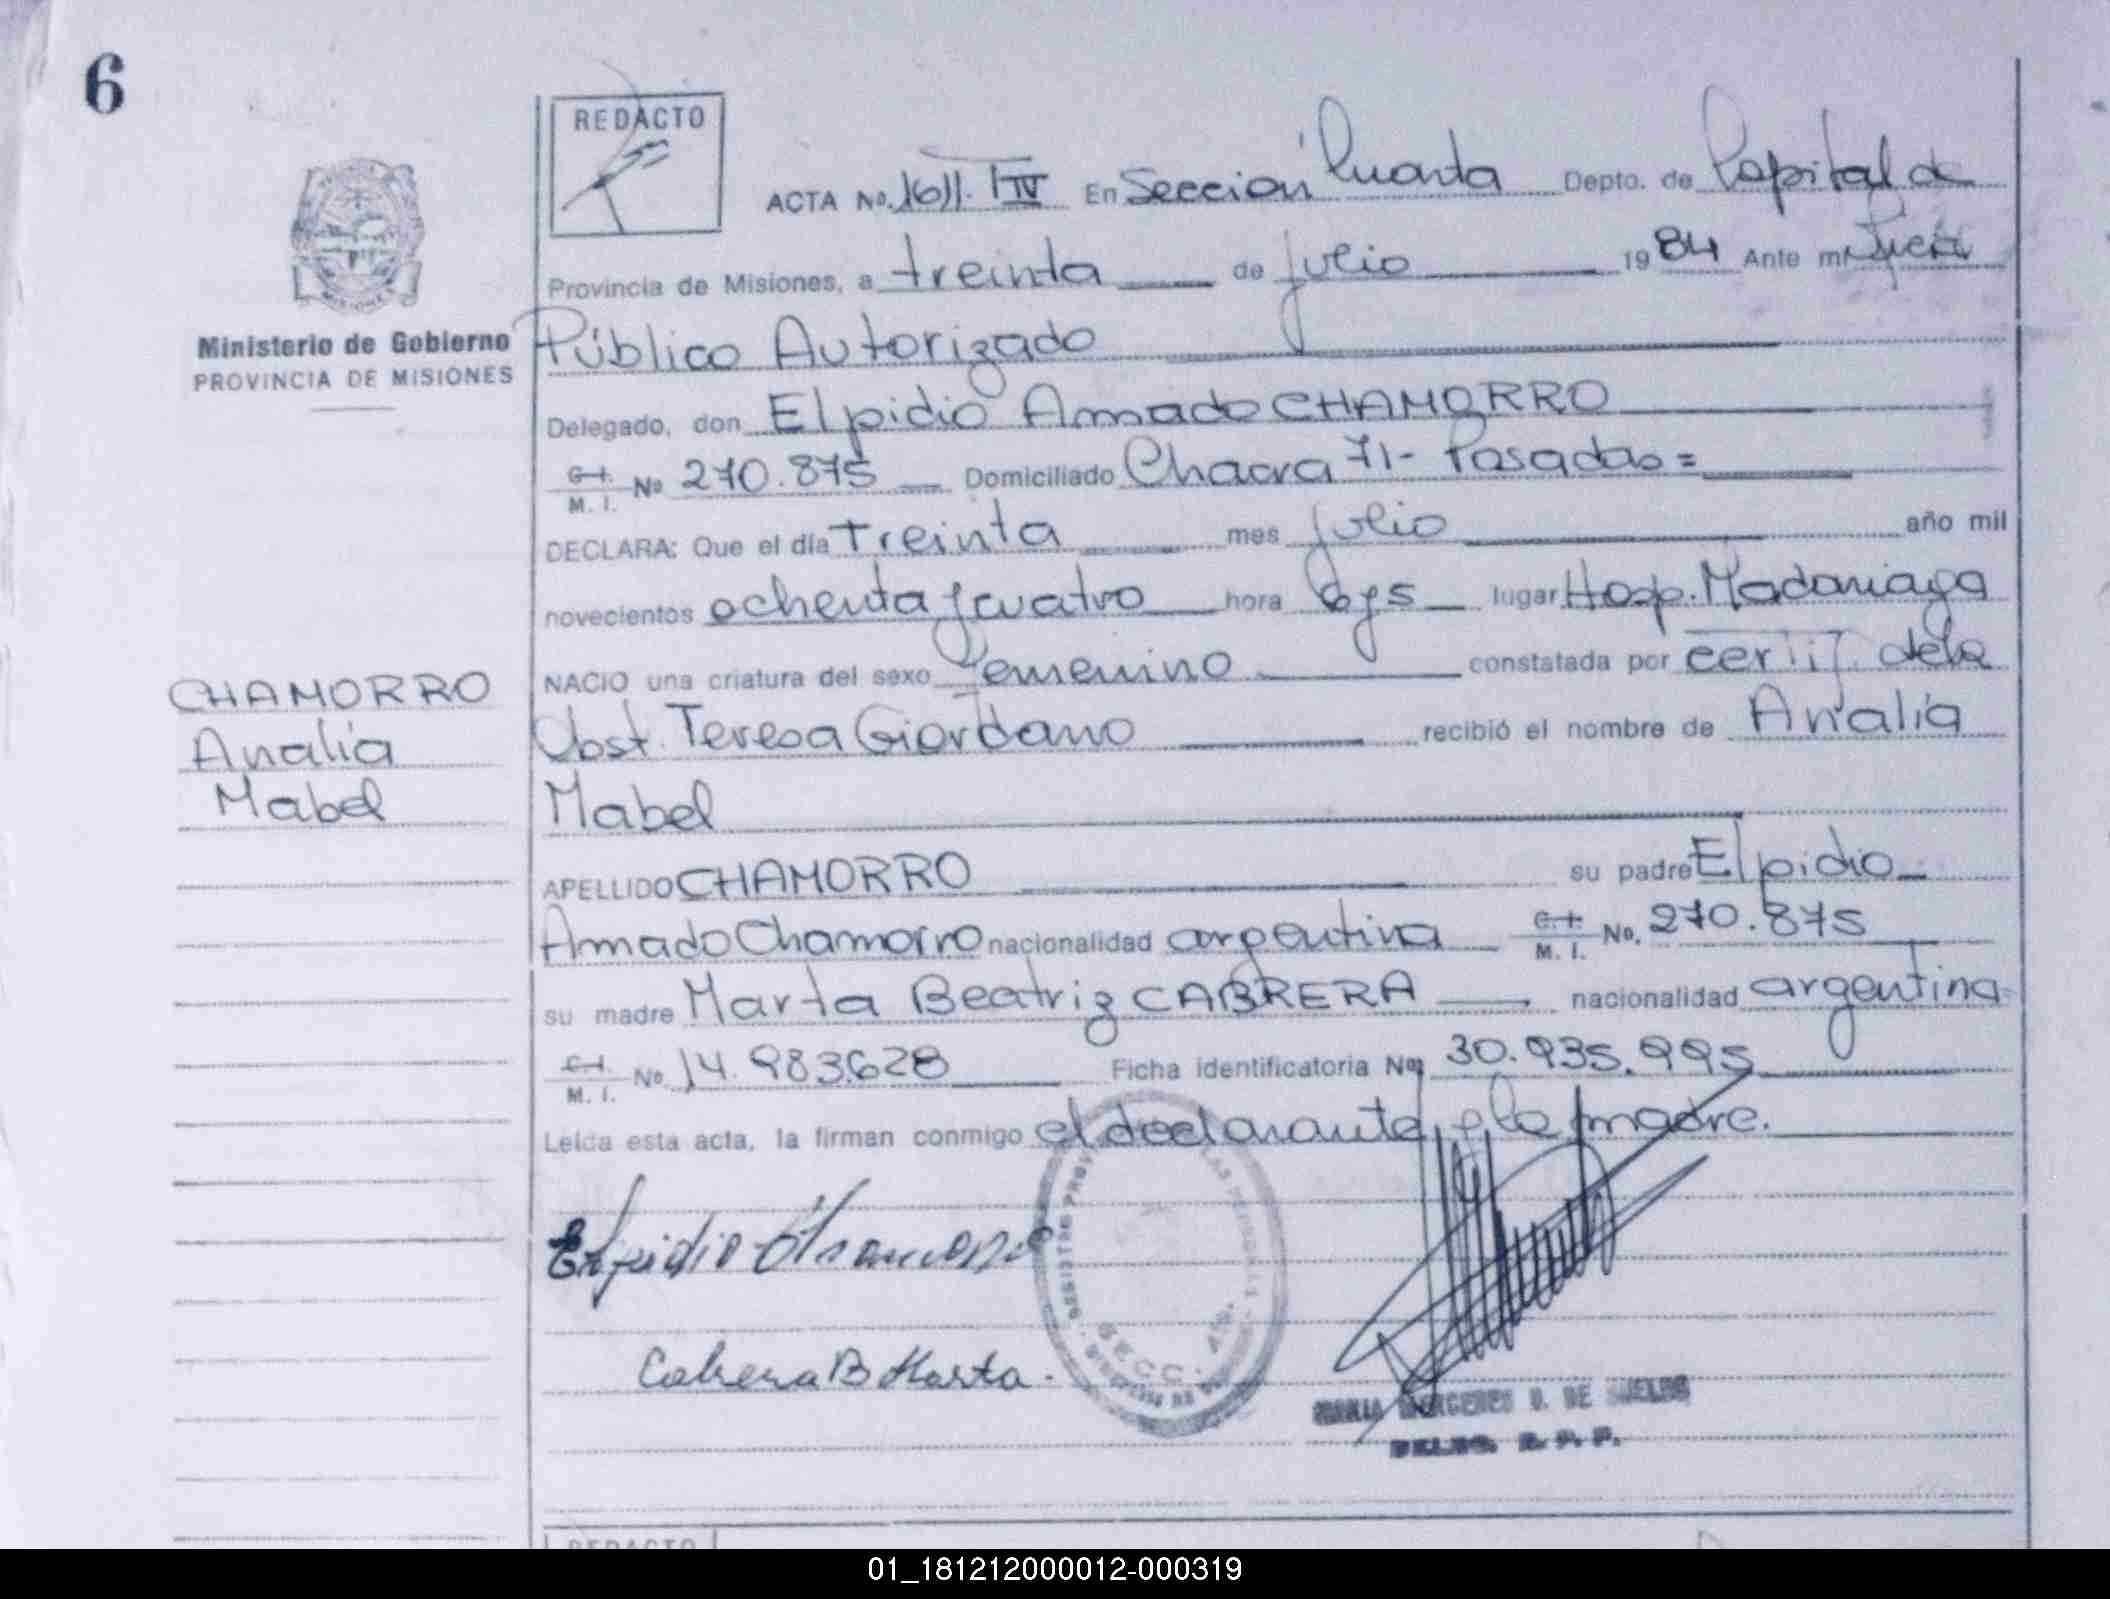 6
REDACTO
ACTA No. 1611. T IV En Sección Cuarta Depto. de Capital de
Provincia de Misiones, a treinta de julio 1984 Ante mi
Público Autorizado
Ministerio de Gobierno
PROVINCIA DE MISIONES
Delegado, don Elpidio Amado CHAMORRO
C.I. M. I. No 270.875 Domiciliado Chacra 71- Posadas=
DECLARA: Que el día treinta mes julio año mil
novecientos ochenta y cuatro hora 6y5 lugar Hosp. Madariaga
NACIO una criatura del sexo Femenino constatada por certif. de la
Obst. Teresa Giordano recibió el nombre de Analía
Mabel
CHAMORRO
Analía
Mabel
APELLIDO CHAMORRO su padre Elpidio
Amado Chamorro nacionalidad argentina C.I. M. I. No. 270.875
su madre Marta Beatriz CABRERA nacionalidad argentina
C.I. M. I. No. 14.983.628 Ficha identificatoria No 30.935.995
Leída esta acta, la firman conmigo el declarante y la madre.
Elpidio Chamorro
Cabrera B Marta.
SECC. 4ta.
MARIA MERCEDES D. DE
DELEG. R. P. P.
REDACTO
01_181212000012-000319